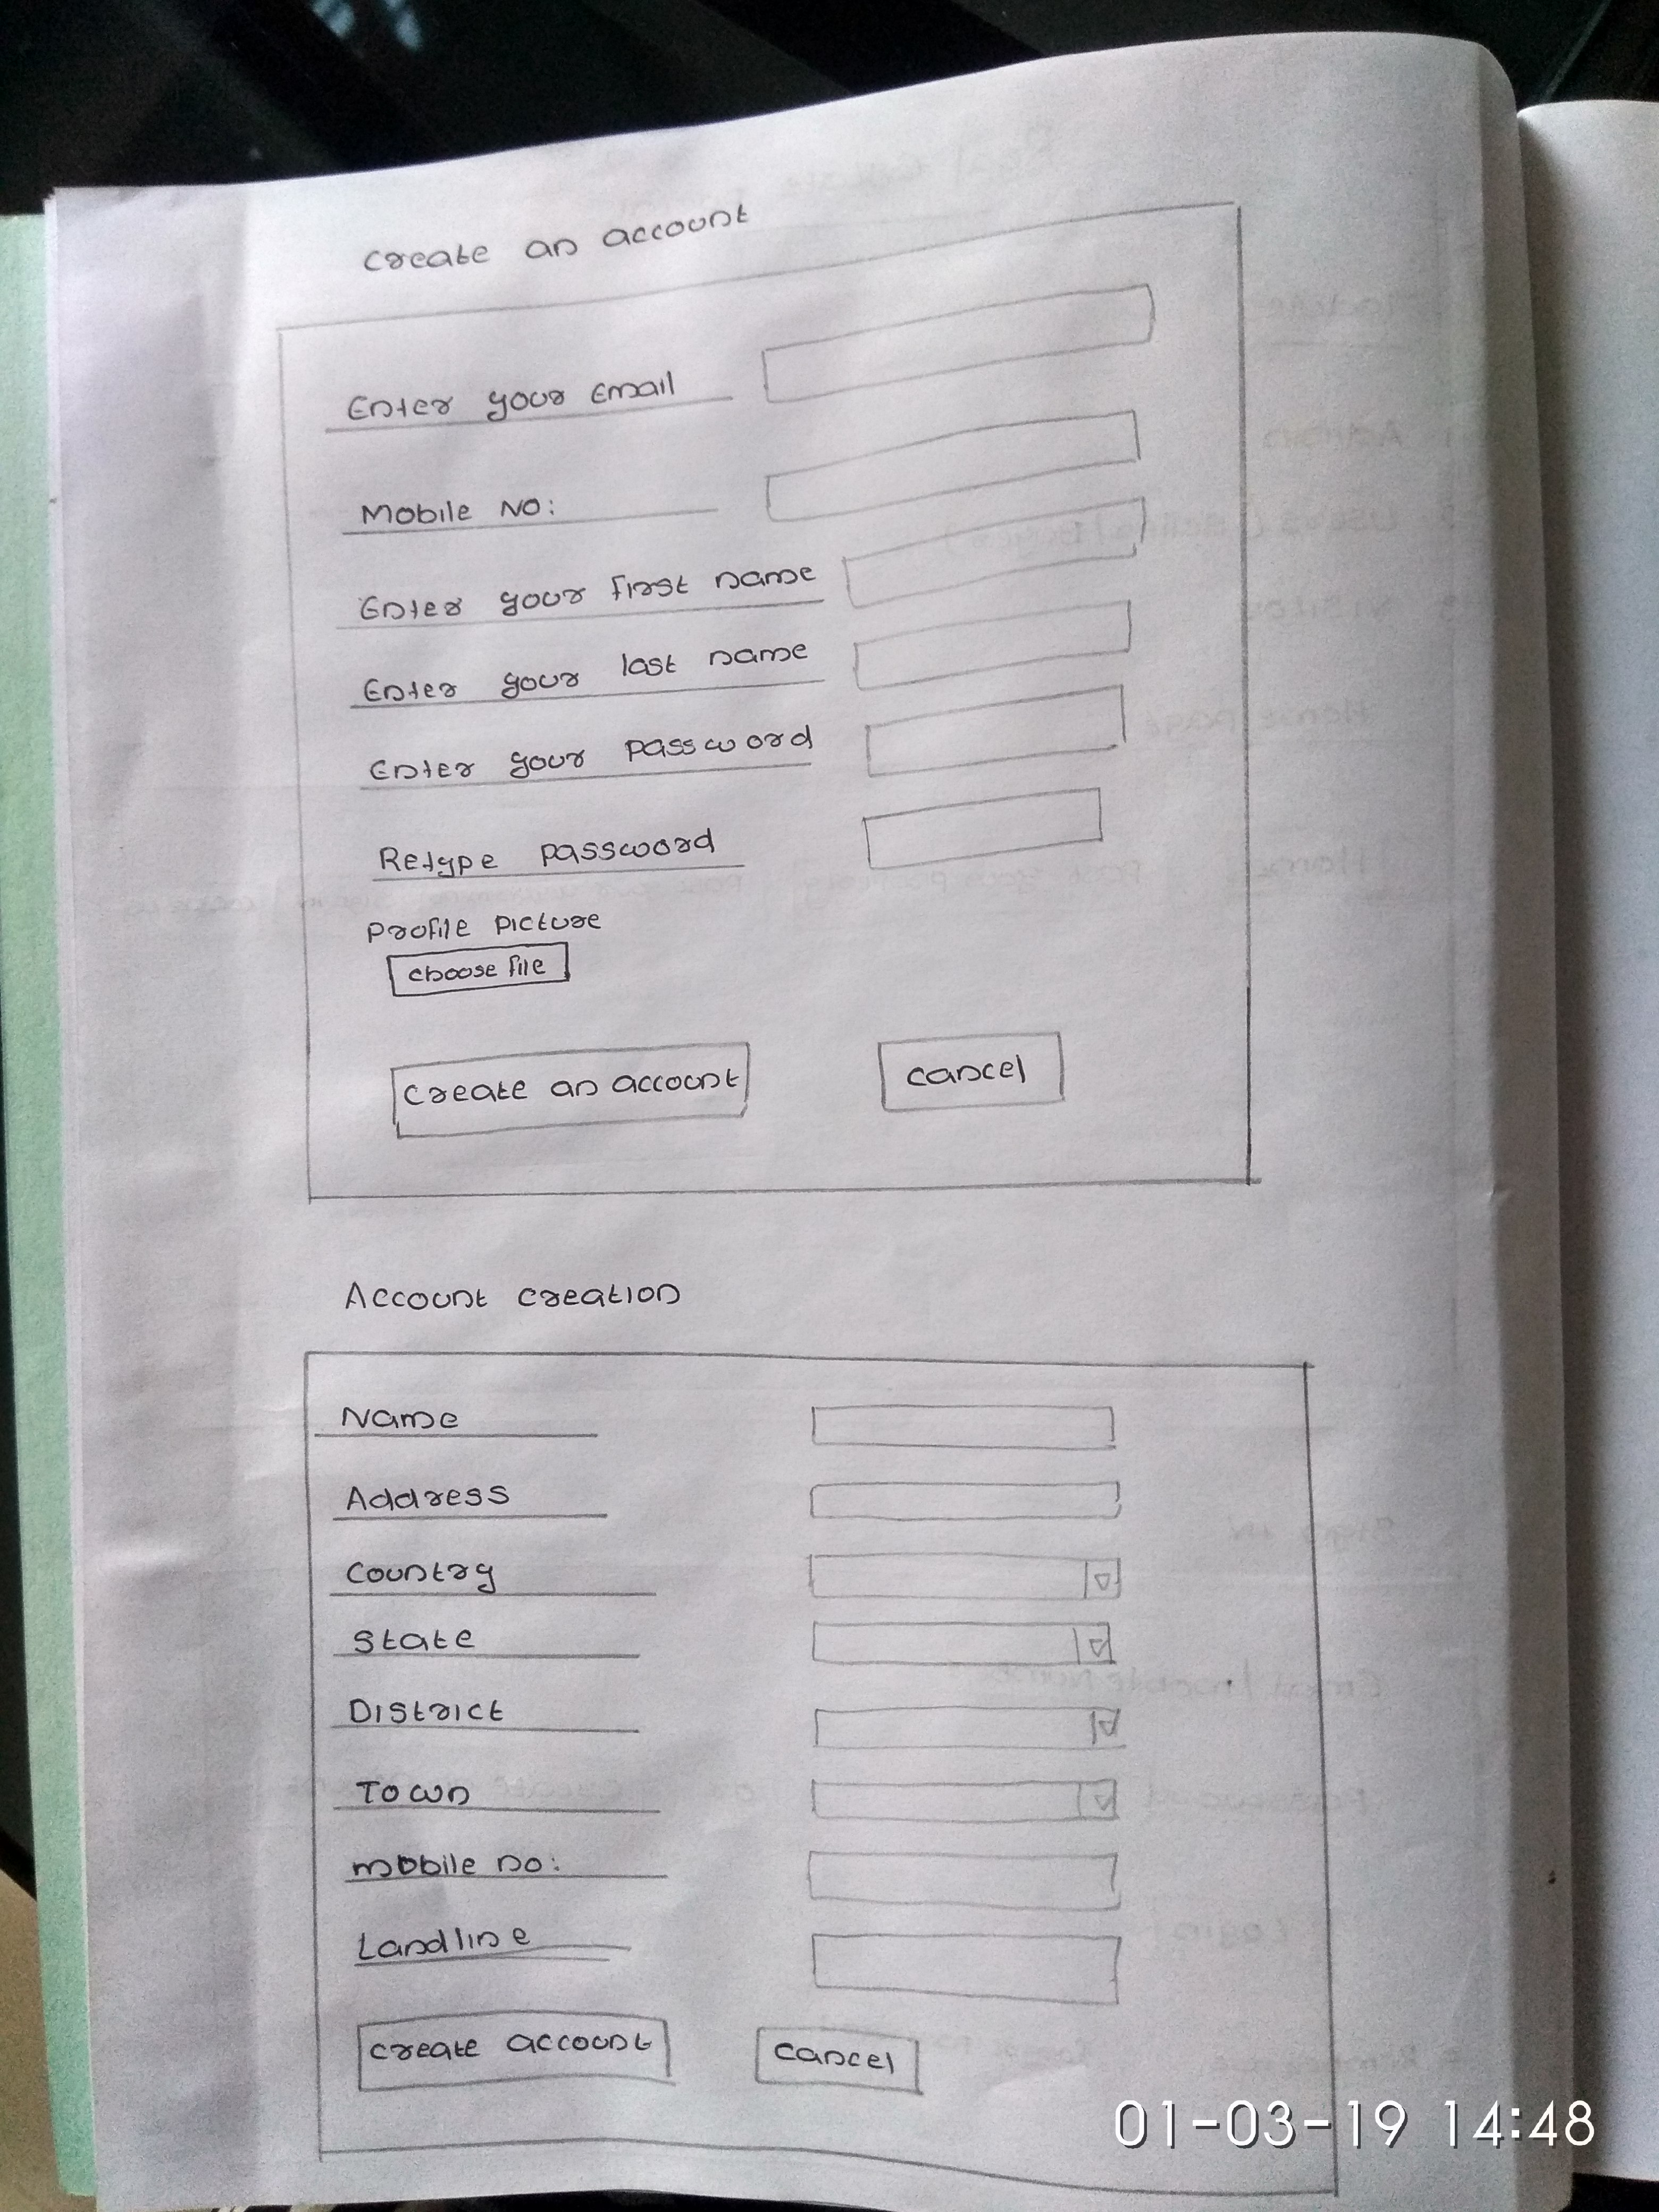 Create an account
Enter your Email
Mobile No:
Enter your first name
Enter your last name
Enter your password
Retype password
Profile picture
choose file
Create an account
cancel
Account creation
Name
Address
Country
State
District
Town
mobile no:
Landline
create account
cancel
01-03-19 14:48